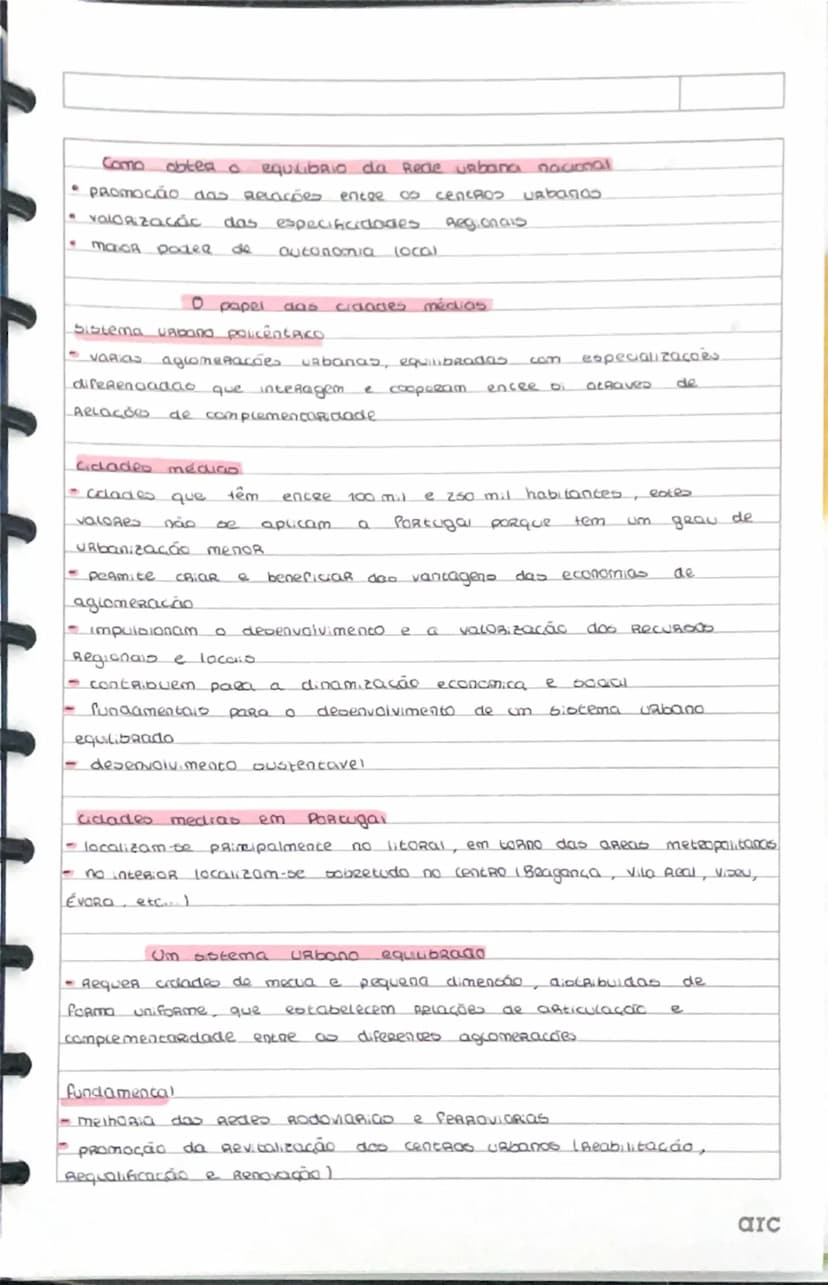 Como obter o equilíbrio da Rede urbana nacional
• promoção das Relações entre os centros urbanos
• valorização das especificidades Regionais
• maior poder de autonomia local
O papel das cidades médias
Sistema urbano policêntrico
- várias aglomerações urbanas, equilibradas com especializações
diferenciadas que interagem e cooperam entre si através de
Relações de complementaridade
Cidades médias
- cidades que têm entre 100 mil e 250 mil habitantes, estes
valores não se aplicam a Portugal porque tem um grau de
urbanização menor
- permite criar e beneficiar das vantagens das economias de
aglomeração
- impulsionam o desenvolvimento e a valorização dos Recursos
Regionais e locais
- contribuem para a dinamização económica e social
- fundamentais para o desenvolvimento de um sistema urbano
equilibrado
- desenvolvimento sustentavel
Cidades médias em Portugal
- localizam-se principalmente no litoral, em torno das areas metropolitanas
- no interior localizam-se sobretudo no centro (Bragança, Vila Real, Viseu,
Évora, etc...)
Um sistema urbano equilibrado
- Requer cidades de media e pequena dimensão, distribuidas de
forma uniforme, que estabelecem Relações de articulação e
complementaridade entre as diferentes aglomerações
fundamental
- melhoria das Redes Rodoviárias e ferroviárias
- promoção da Revitalização dos centros urbanos (Reabilitação,
Requalificação e Renovação)
arc